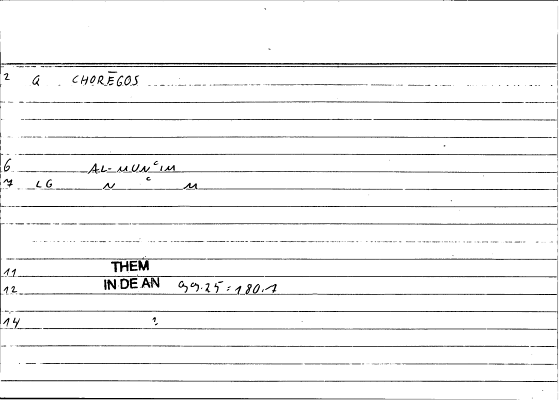 2 Q CHORĒGOS
6 AL-MUNᶜIM
7 LG N ᶜ M
11 THEM
12 IN DE AN 99.25 : 180.1
14 ?